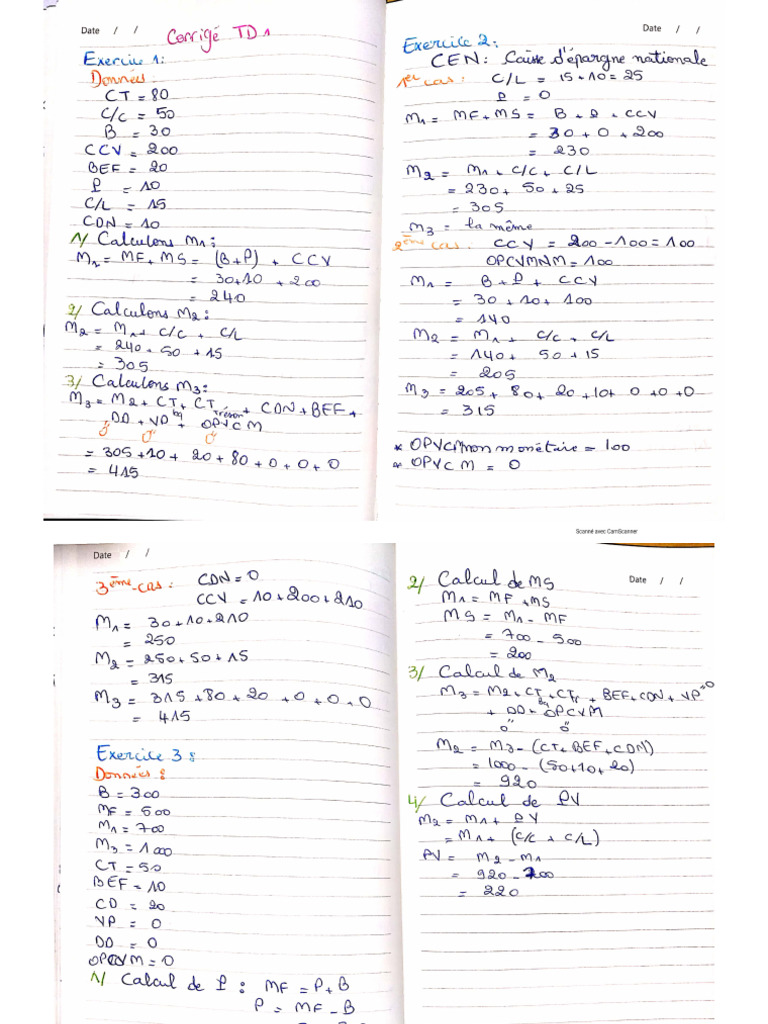 Date / /
Corrigé TD1
Exercice 1:
Données:
CT = 80
C/C = 50
B = 30
CCV = 200
BEF = 20
P = 10
C/L = 15
CDN = 10
1/ Calculons M1:
M1 = MF + MS = (B+P) + CCV
= 30+10 + 200
= 240
2/ Calculons M2:
M2 = M1 + C/C + C/L
= 240 + 50 + 15
= 305
3/ Calculons M3:
M3 = M2 + CT bq + CT Trésor + CDN + BEF +
DD + VD + OPVCM
0" 0" 0"
= 305+10+ 20+80+0+0+0
= 415
Date / /
Exercice 2:
CEN: Caisse d'épargne nationale
1er cas: C/L = 15+10=25
P = 0
M1 = MF+MS = B + P + CCV
= 30 + 0 + 200
= 230
M2 = M1 + C/C + C/L
= 230+ 50 + 25
= 305
M3 = la même
2ème cas: CCV = 200 - 100 = 100
OPCVMNM = 100
M1 = B + P + CCV
= 30 + 10 + 100
= 140
M2 = M1 + C/C + C/L
= 140+ 50 + 15
= 205
M3 = 205+ 80+ 20+ 10+ 0 +0 +0
= 315
* OPVCM non monétaire = 100
* OPVCM = 0
Scanné avec CamScanner
Date / /
3ème cas: CDN = 0
CCV = 10+200+210
M1 = 30+10+210
= 250
M2 = 250+50+15
= 315
M3 = 315 +80+ 20 +0 + 0 + 0
= 415
Exercice 3:
Données:
B = 300
MF = 500
M1 = 700
M3 = 1000
CT = 50
BEF = 10
CD = 20
VP = 0
DD = 0
OPCVM = 0
1/ Calcul de P: MF = P+B
P = MF - B
2/ Calcul de MS
Date / /
M1 = MF + MS
MS = M1 - MF
= 700 - 500
= 200
3/ Calcul de M2
M3 = M2 + CT bq + CTr + BEF + CDN + VP =0
+ DD + OPCVM
0" 0"
M2 = M3 - (CT + BEF + CDN)
= 1000 - (50+10+20)
= 920
4/ Calcul de PV
M2 = M1 + PV
= M1 + (C/C + C/L)
PV = M2 - M1
= 920 - 700
= 220